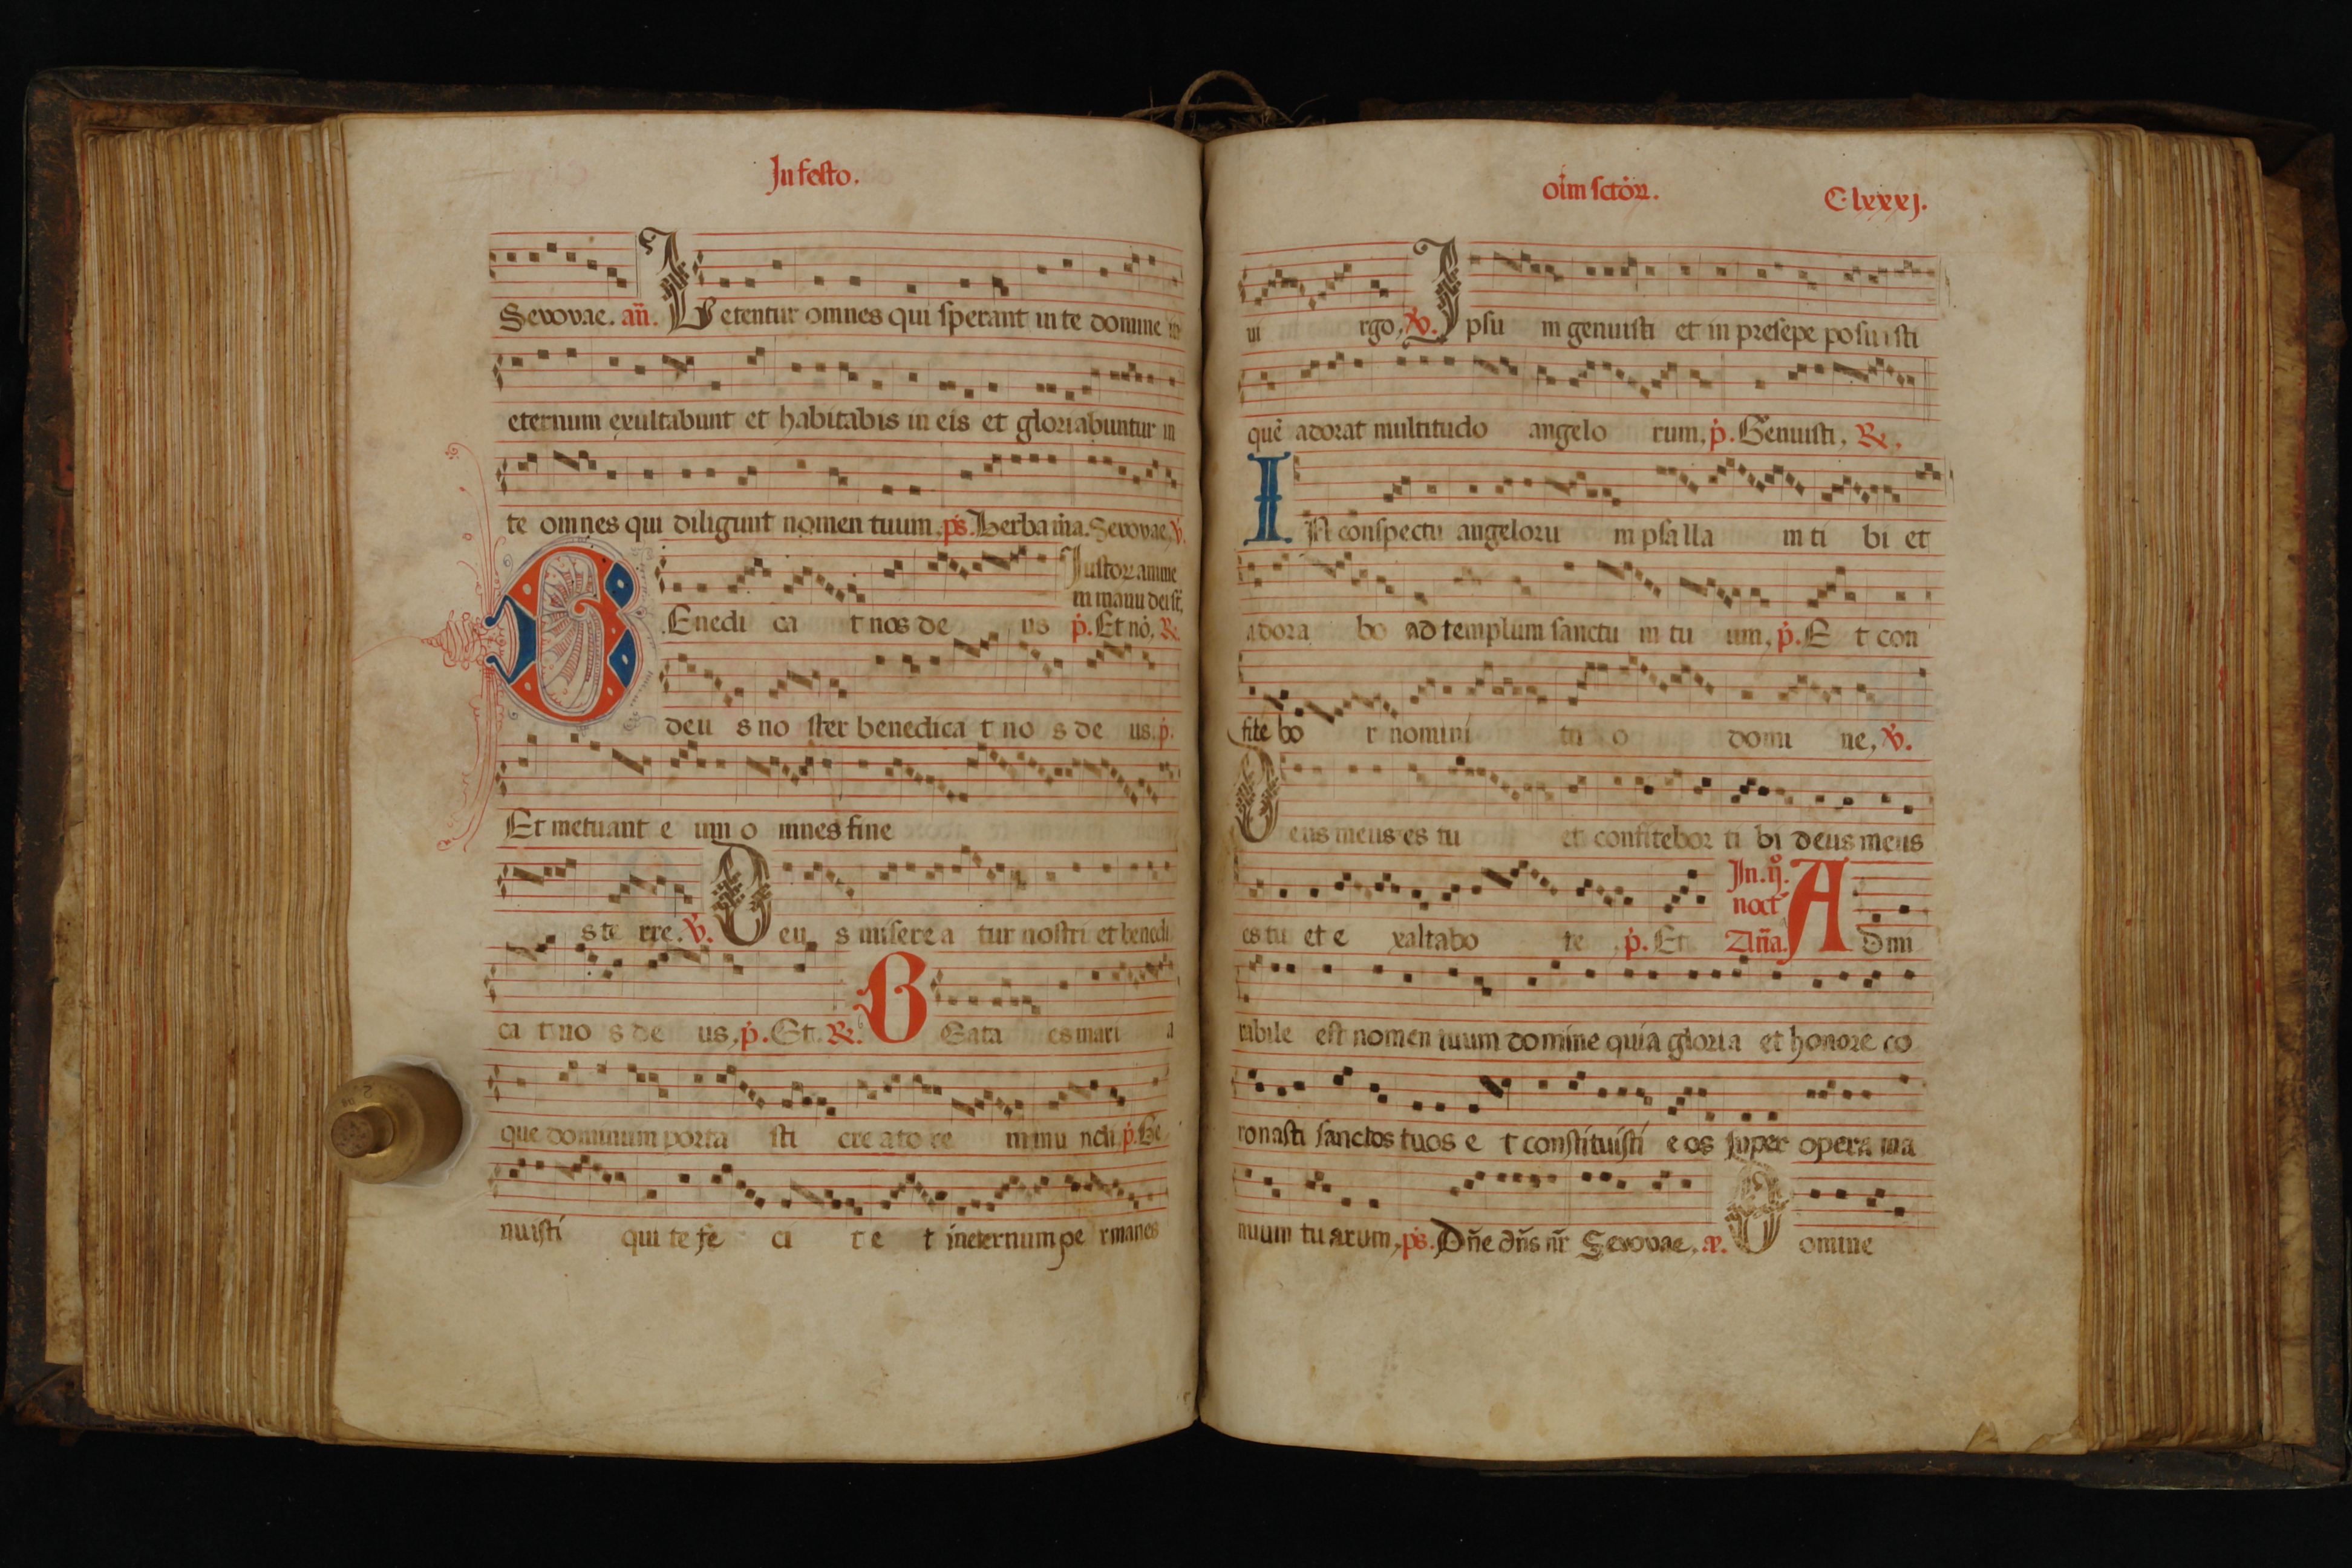 In festo.
Sevovae. añ. Letentur omnes qui sperant in te domine in
eternum exultabunt et habitabis in eis et gloriabuntur in
te omnes qui diligunt nomen tuum. ps. Uerba m̃a. Sevovae, v.
Justoꝝ anime
in manu dei st̃,
BEnedi ca t nos de us p. Et nō, R.
deu s no ster benedica t no s de us. p.
Et metuant e um o mnes fine
s te rre. V. Deu s miserea tur nostri et benedi
ca t no s de us, p. Et. R. BEata es mari a
que dominum porta sti creatore m mu ndi. p. Ge
nuisti qui te fe ci t e t ineternum pe rmanes
oĩm sctoꝝ. Clxxxj.
ui rgo, V. Ipsu m genuisti et in presepe posuisti
quē adorat multitudo angelo rum, p. Genuisti, R.
IN conspectu angeloru m psalla m ti bi et
adora bo ad templum sanctu m tu um, p. E t con
fite bo r nomini tu o domi ne, V.
Deus meus es tu et confitebor ti bi deus meus
In. ij.
noct
es tu et e xaltabo te p. Et Añа. Admi
rabile est nomen tuum domine quia gloria et honore co
ronasti sanctos tuos e t constituisti eos super opera ma
nuum tuarum, ps. Dñe dñs nr̃ Sevovae, Domine